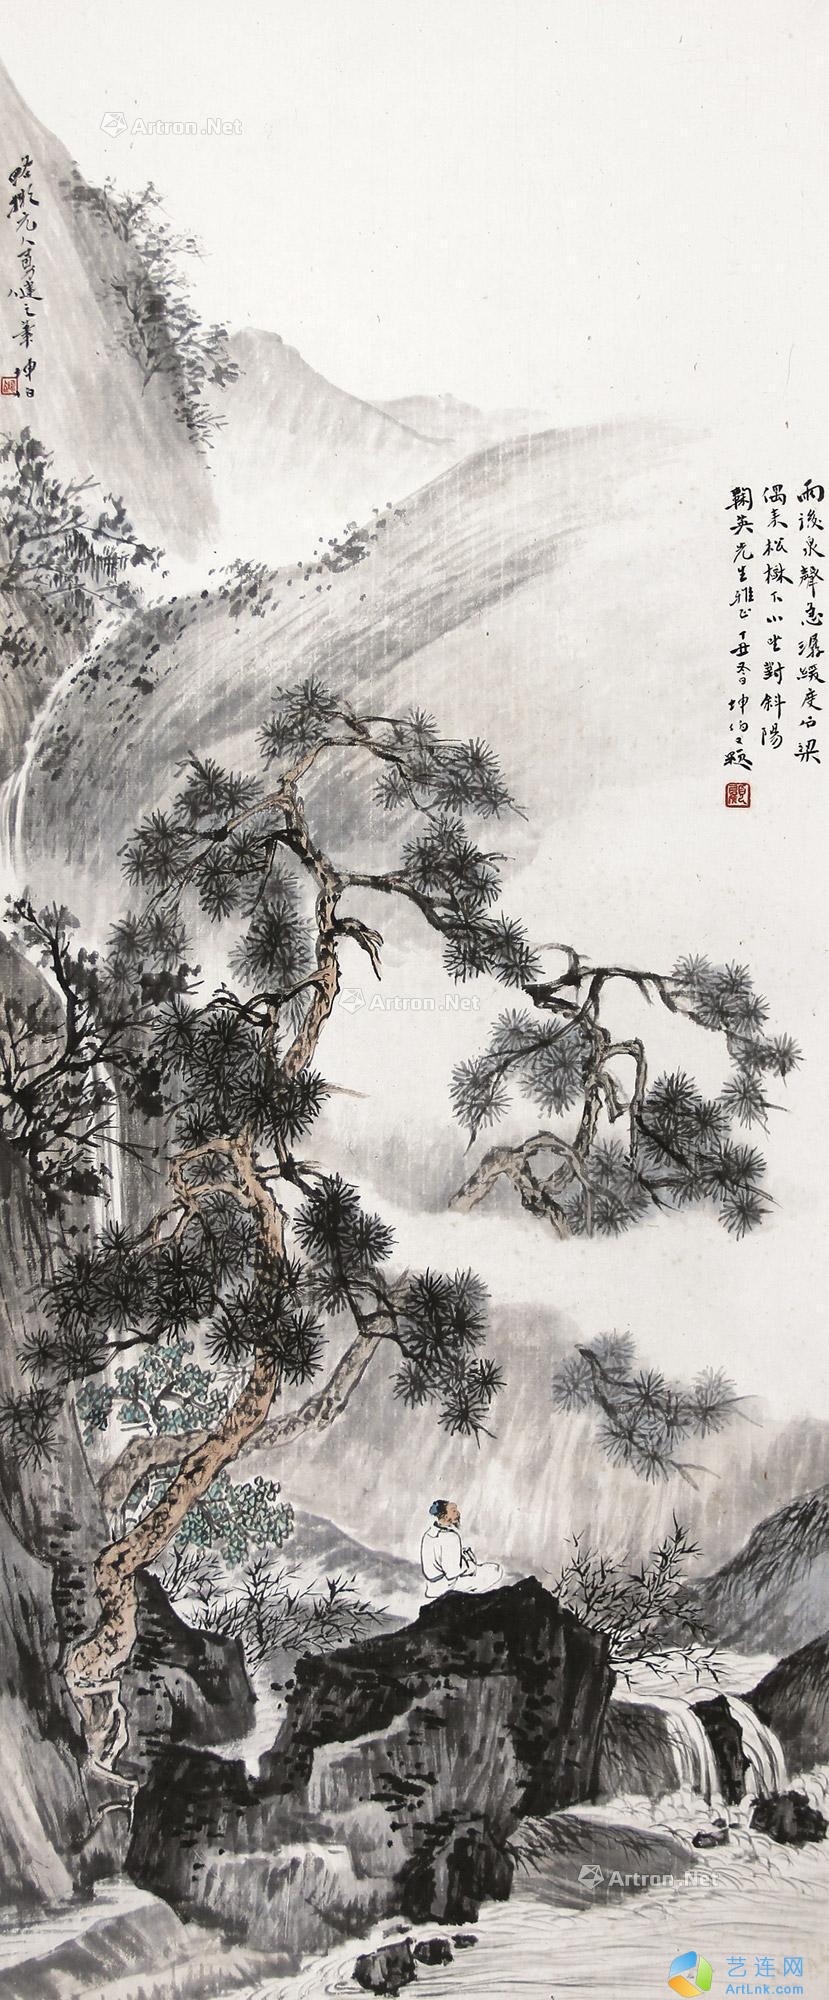 雨後泉聲急潺緩度石梁
偶來松樹下小坐對斜陽
鞠英先生雅正丁丑冬日坤伯又題
略擬元人勇健之筆坤伯
Artron.Net
Artron.Net
Artron.Net
艺连网
ArtLnk.com